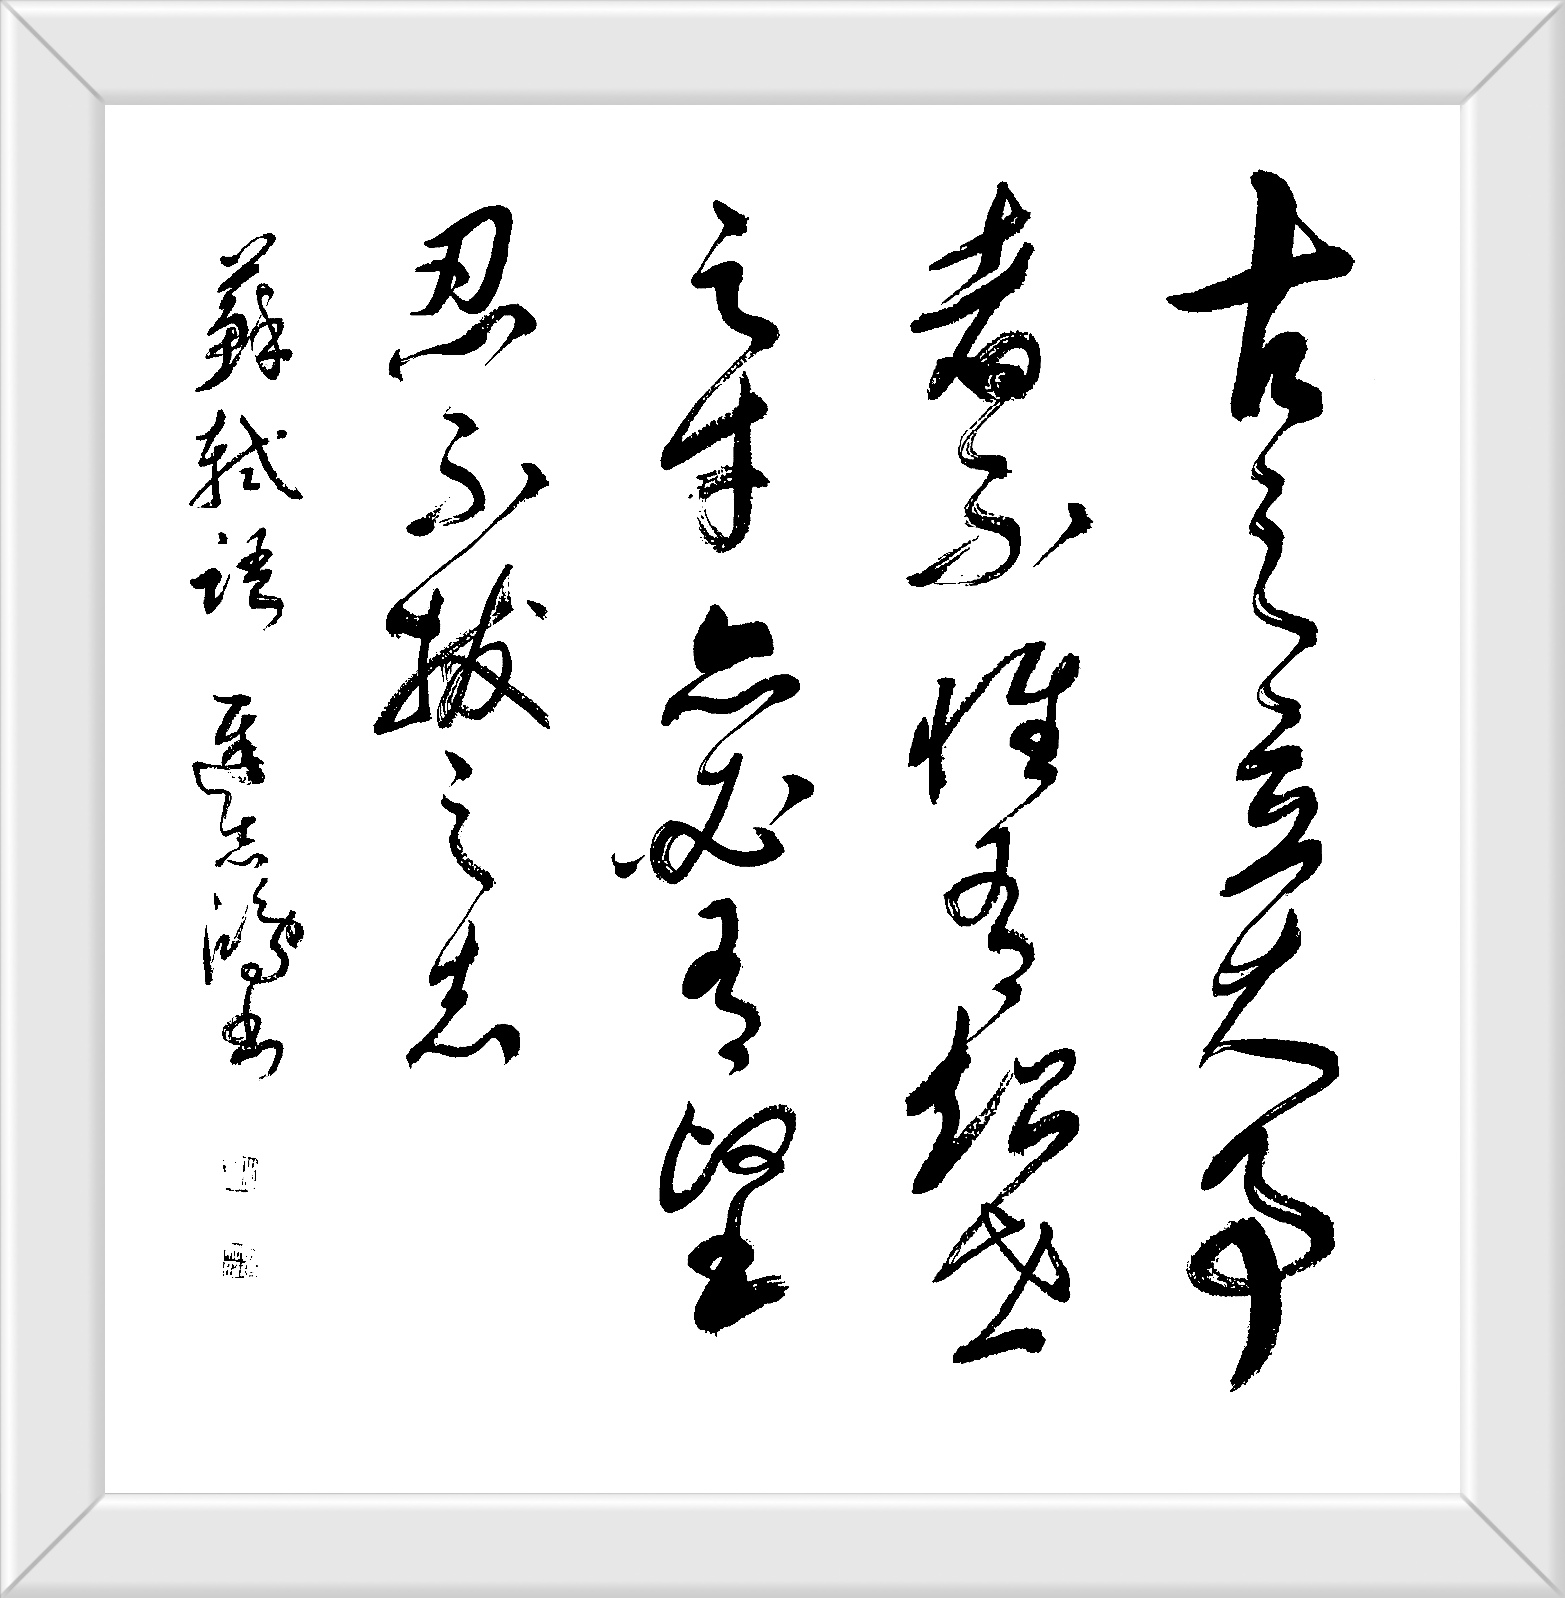 古之立大事
者不惟有超世
之才亦必有堅
忍不拔之志
蘇軾語 志鴻書